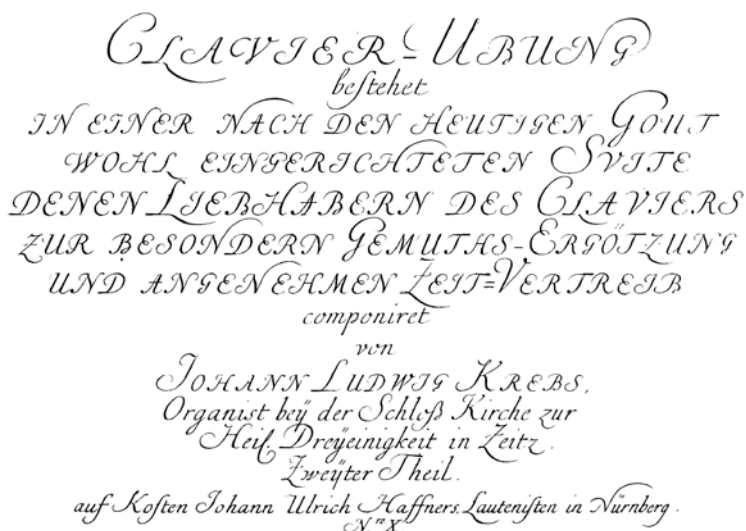 CLAVIER-UBUNG
bestehet
IN EINER NACH DEN HEUTIGEN GOUT
WOHL EINGERICHTETEN SVITE
DENEN LIEBHABERN DES CLAVIERS
ZUR BESONDERN GEMUTHS-ERGÖTZUNG
UND ANGENEHMEN ZEIT=VERTREIB
componiret
von
JOHANN LUDWIG KREBS,
Organist beÿ der Schloß Kirche zur
Heil. Dreÿeinigkeit in Zeitz.
Zweÿter Theil.
auf Kosten Johann Ulrich Haffners, Lautenisten in Nürnberg.
N.ro X